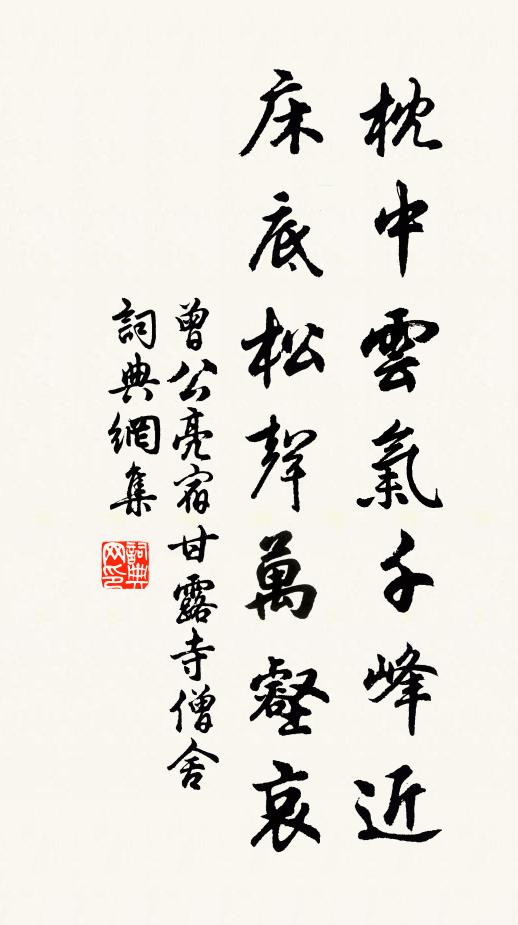 枕中雲氣千峰近
床底松聲萬壑哀
曾公亮宿甘露寺僧舍
詞典網集
詞典网印